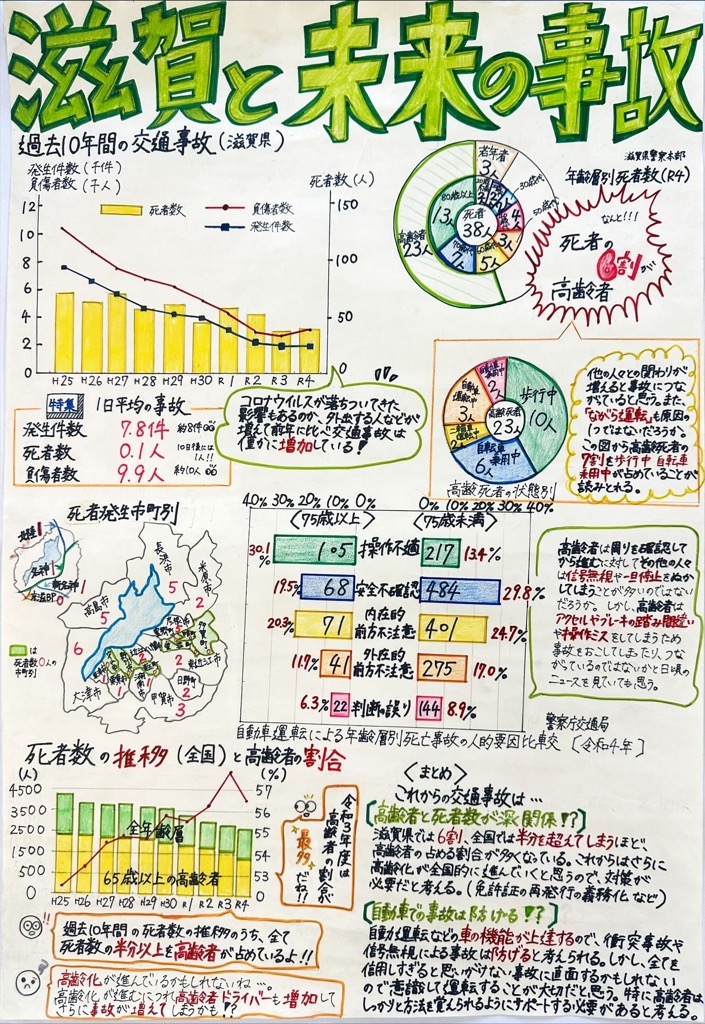 滋賀と未来の事故
過去10年間の交通事故(滋賀県)
発生件数(千件)
負傷者数(千人)
死者数(人)
12
10
8
6
4
2
0
150
100
50
0
死者数
負傷者数
発生件数
H25 H26 H27 H28 H29 H30 R1 R2 R3 R4
滋賀県警察本部
年齢層別死者数(R4)
若年者
3人
30歳代
50歳代
80歳以上
13人
高齢者
23人
死者
38人
7人
5人
3人
4人
なんと!!!
死者の
6割が…
高齢者
特集
1日平均の事故
発生件数 7.8件 約8件
死者数 0.1人 10日後には1人!!
負傷者数 9.9人 約10人
コロナウイルスが落ちついてきた
影響もあるのか、外出する人などが
増えて前年に比べ交通事故は
僅かに増加している!
歩行中
10人
高齢死者
23人
自転車
乗用中
6人
2人
3人
2人
高齢死者の状態別
他の人々との関わりが
増えると事故につな
がていると思う。また、
「ながら運転」も原因の
1つではないだろうか。
この図から高齢死者の
7割を歩行中 自転車
乗用中が占めていることが
読みとれる。
死者発生市町別
北陸 1
名神 1
新名神 1
京滋BP 0
は
死者数0人の
市町別
長浜市
5
米原市
2
高島市
5
6
大津市
甲賀市
3
日野町
2
東近江市
多賀町
40% 30% 20% 10% 0%
0% 10% 20% 30% 40%
〈75歳以上〉
〈75歳未満〉
30.1% 105 操作不適 217 13.4%
19.5% 68 安全不確認 484 29.8%
20.3% 71 内在的前方不注意 401 24.7%
11.7% 41 外在的前方不注意 275 17.0%
6.3% 22 判断の誤り 144 8.9%
警察庁交通局
自動車運転による年齢層別死亡事故の人的要因比車交 [令和4年]
高齢者は周りを確認して
から進むに対してその他の人々
は信号無視や一旦停止をぬか
してしまうことが多いのではない
だろうか。しかし、高齢者は
アクセルやブレーキの踏み間違い
や操作ミスをしてしまうため
事故をおこしてしまったり、つな
がているのではないかと日頃の
ニュースを見ていても思う。
死者数の推移(全国)と高齢者の割合
(人)
(%)
4500
3500
2500
1500
500
0
57
56
55
54
53
全年齢層
65歳以上の高齢者
H25 H26 H27 H28 H29 H30 R1 R2 R3 R4
令和3年度は
高齢者の割合が
最多
だね!!
過去10年間の死者数の推移のうち、全て
死者数の半分以上を高齢者が占めているよ!!
高齢化が進んでいるかもしれないね…。
高齢化が進むにつれ高齢者ドライバーも増加して
さらに事故が増えてしまうかも!?
〈まとめ〉
これからの交通事故は…
[高齢者と死者数が深く関係!?]
滋賀県では6割、全国では半分を超えてしまうほど、
高齢者の占める割合が多くなっている。これからはさらに
高齢化が全国的に進んでいくと思うので、対策が
必要だと考える。(免許証の再発行の義務化など)
[自動車での事故は防げる!?]
自動運転などの車の機能が上達するので、衝突事故や
信号無視による事故は防げると考えられる。しかし、全てを
信用しすぎると思いがけない事故に直面するかもしれない
ので意識して運転することが大切だと思う。特に高齢者は
しっかりと方法を覚えられるようにサポートする必要があると考える。